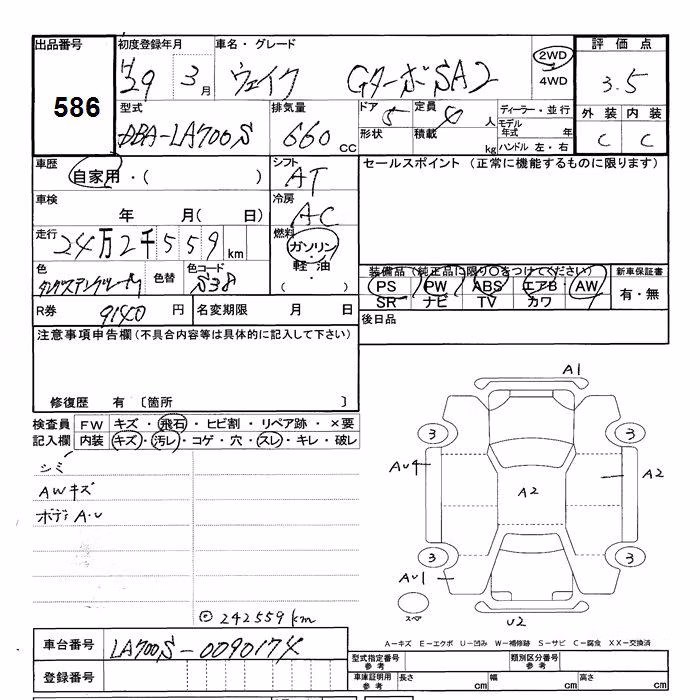 出品番号 初度登録年月 車名・グレード 評価点
586 H29 3月 ウェイク Gターボ SA2 2WD 4WD 3.5
型式 排気量 ドア 定員 ディーラー・並行 外装 内装
DBA-LA700S 660cc 5 4人 モデル年式 年 C C
形状 積載 kg ハンドル 左・右
車歴 シフト セールスポイント (正常に機能するものに限ります)
自家用・( ) AT
車検 冷房
年 月( 日) AC
走行 燃料
24万2千559km ガソリン・軽油・( )
色 色替 色コード 装備品(純正品に限り○をつけてください) 新車保証書
S38 PS PW ABS エアB AW 有・無
SR ナビ TV カワ
R券 9140円 名変期限 月 日 後日品
注意事項申告欄(不具合内容等は具体的に記入して下さい)
修復歴 有 〔箇所 〕
検査員記入欄 FW キズ・飛石・ヒビ割・リペア跡・×要
内装 キズ・汚レ・コゲ・穴・スレ・キレ・破レ
シミ
AWキズ
ボディA・U
A1
3 3
AU4 A2 A2
3 3
AU1
スペア U2
◎ 242559km
A-キズ E-エクボ U-凹み W-補修跡 S-サビ C-腐食 XX-交換済
車台番号 LA700S-0090174
型式指定番号 参考 類別区分番号 参考
登録番号 車庫証明用 参考 長さ cm 幅 cm 高さ cm